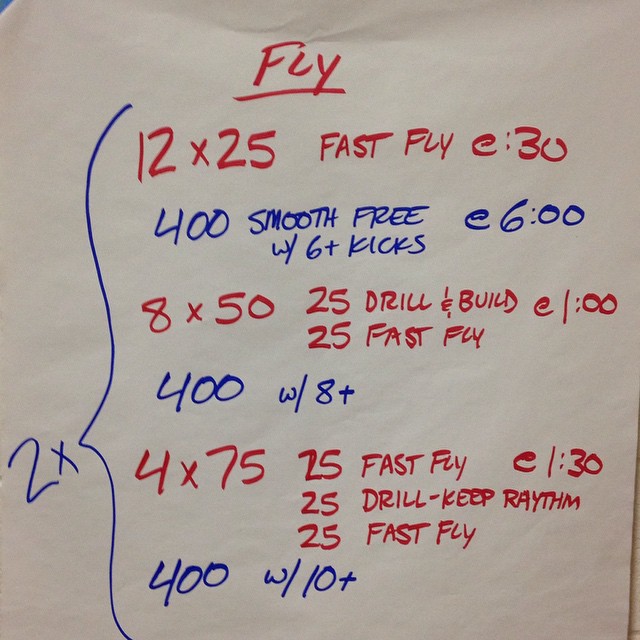 FLY
12 x 25 FAST FLY @ :30
400 SMOOTH FREE @ 6:00
w/ 6+ KICKS
8 x 50 25 DRILL & BUILD @ 1:00
25 FAST FLY
400 w/ 8+
2x
4 x 75 25 FAST FLY @ 1:30
25 DRILL-KEEP RAYTHM
25 FAST FLY
400 w/ 10+